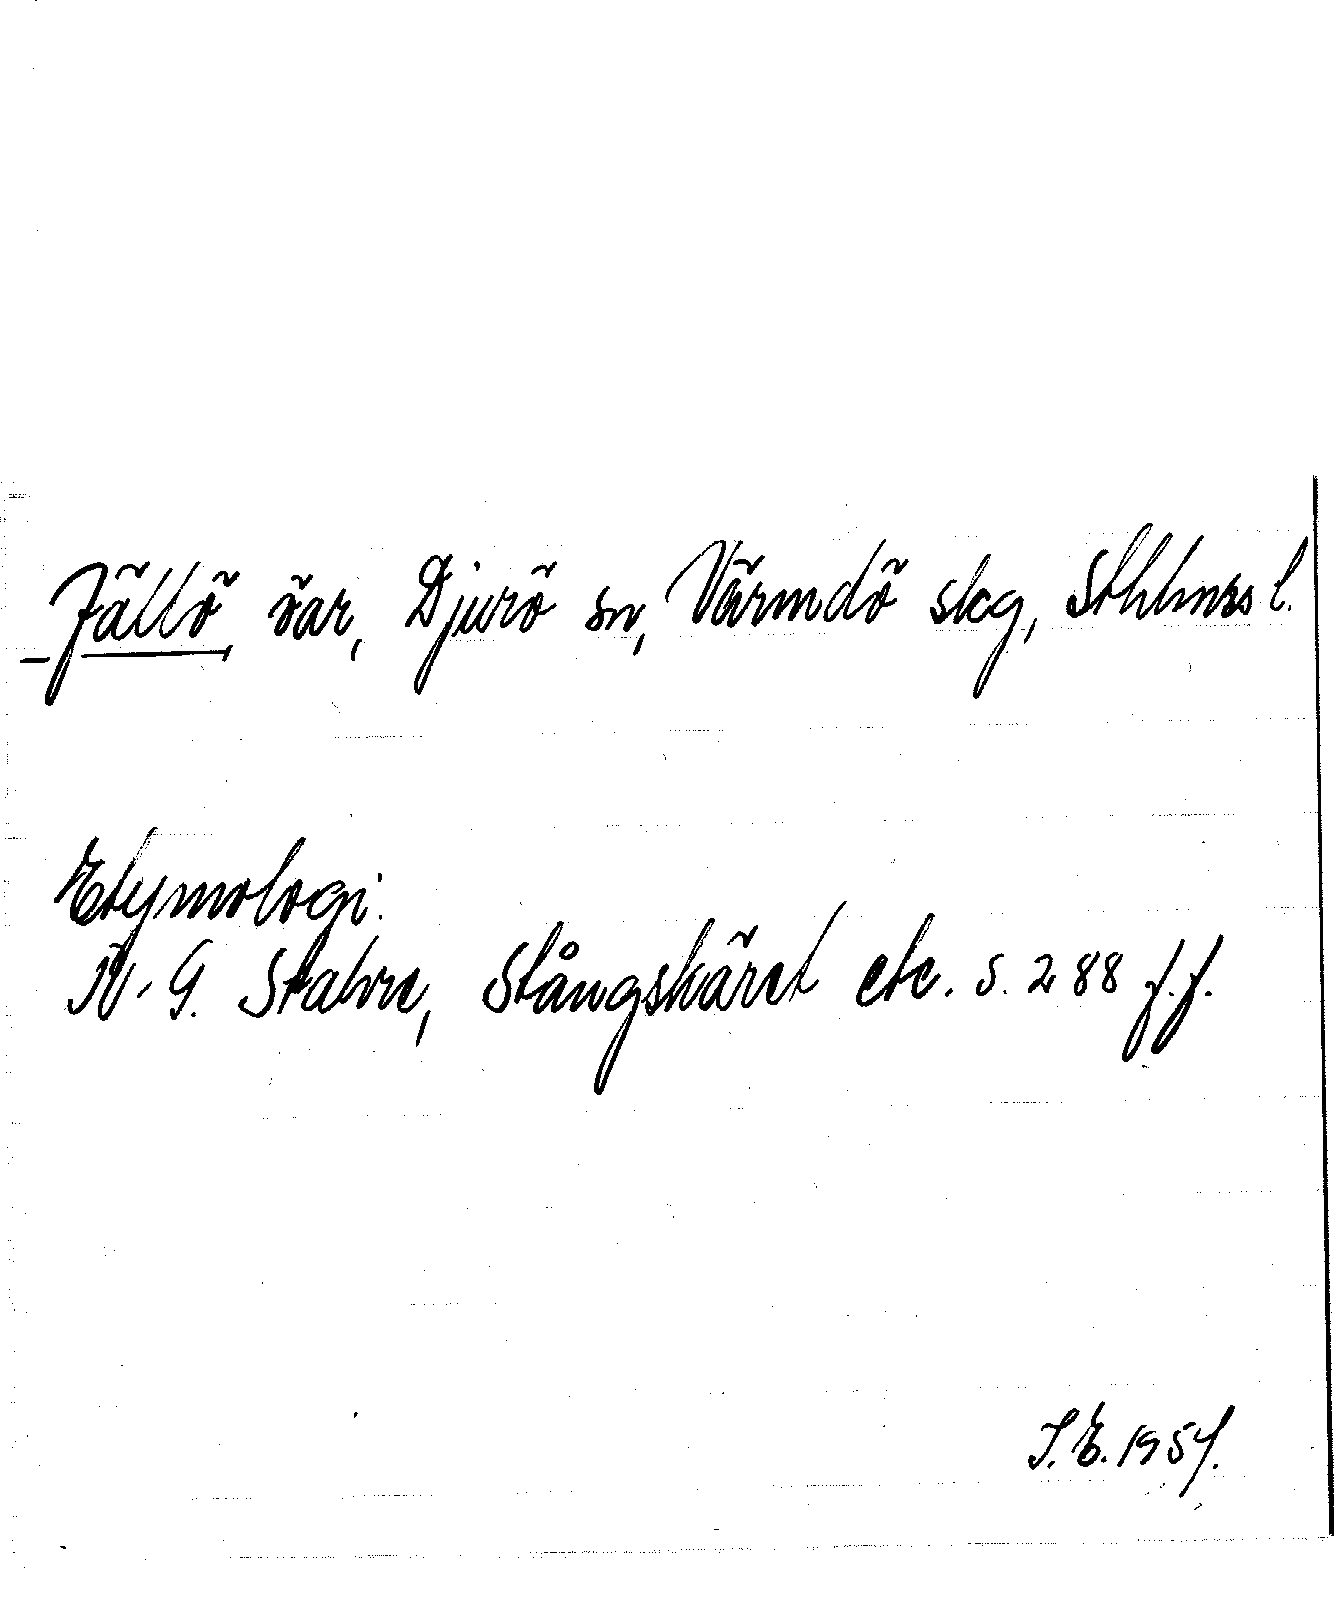 Fällö öar, Djurö sn, Värmdö skg, Sthlms l.
Etymologi.
N.-G. Stahre, Stångskäret etc. s. 288 f.f.
I.E. 1957.